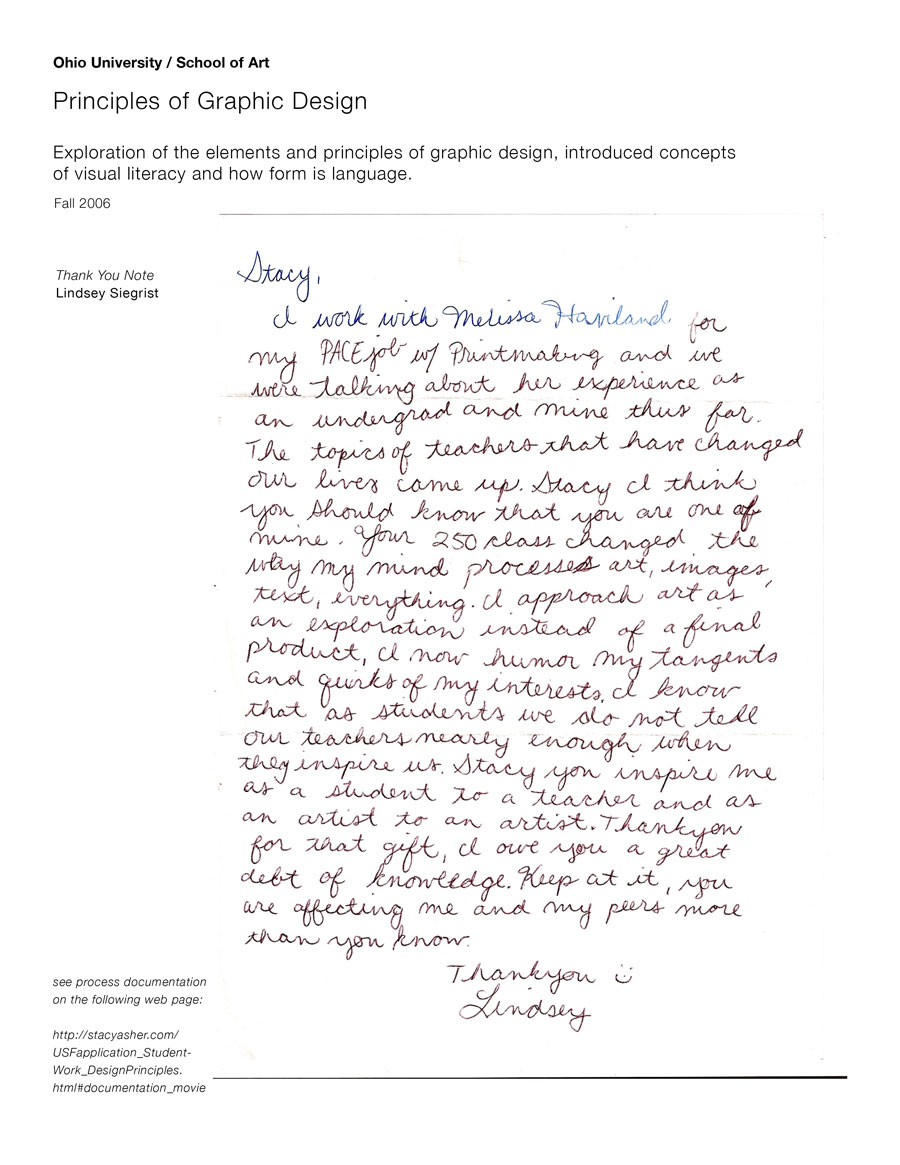 Ohio University / School of Art
Principles of Graphic Design
Exploration of the elements and principles of graphic design, introduced concepts
of visual literacy and how form is language.
Fall 2006
Thank You Note
Lindsey Siegrist
Stacy,
I work with Melissa Haviland for
my PACE job w/ Printmaking and we
were talking about her experience as
an undergrad and mine thus far.
The topics of teachers that have changed
our lives came up. Stacy I think
you should know that you are one of
mine. Your 250 class changed the
way my mind processes art, images,
text, everything. I approach art as
an exploration instead of a final
product, I now humor my tangents
and quirks of my interests. I know
that as students we do not tell
our teachers nearly enough when
they inspire us. Stacy you inspire me
as a student to a teacher and as
an artist to an artist. Thankyou
for that gift, I owe you a great
debt of knowledge. Keep at it, you
are affecting me and my peers more
than you know.
Thankyou :)
Lindsey
see process documentation
on the following web page:
http://stacyasher.com/
USFapplication_Student-
Work_DesignPrinciples.
html#documentation_movie